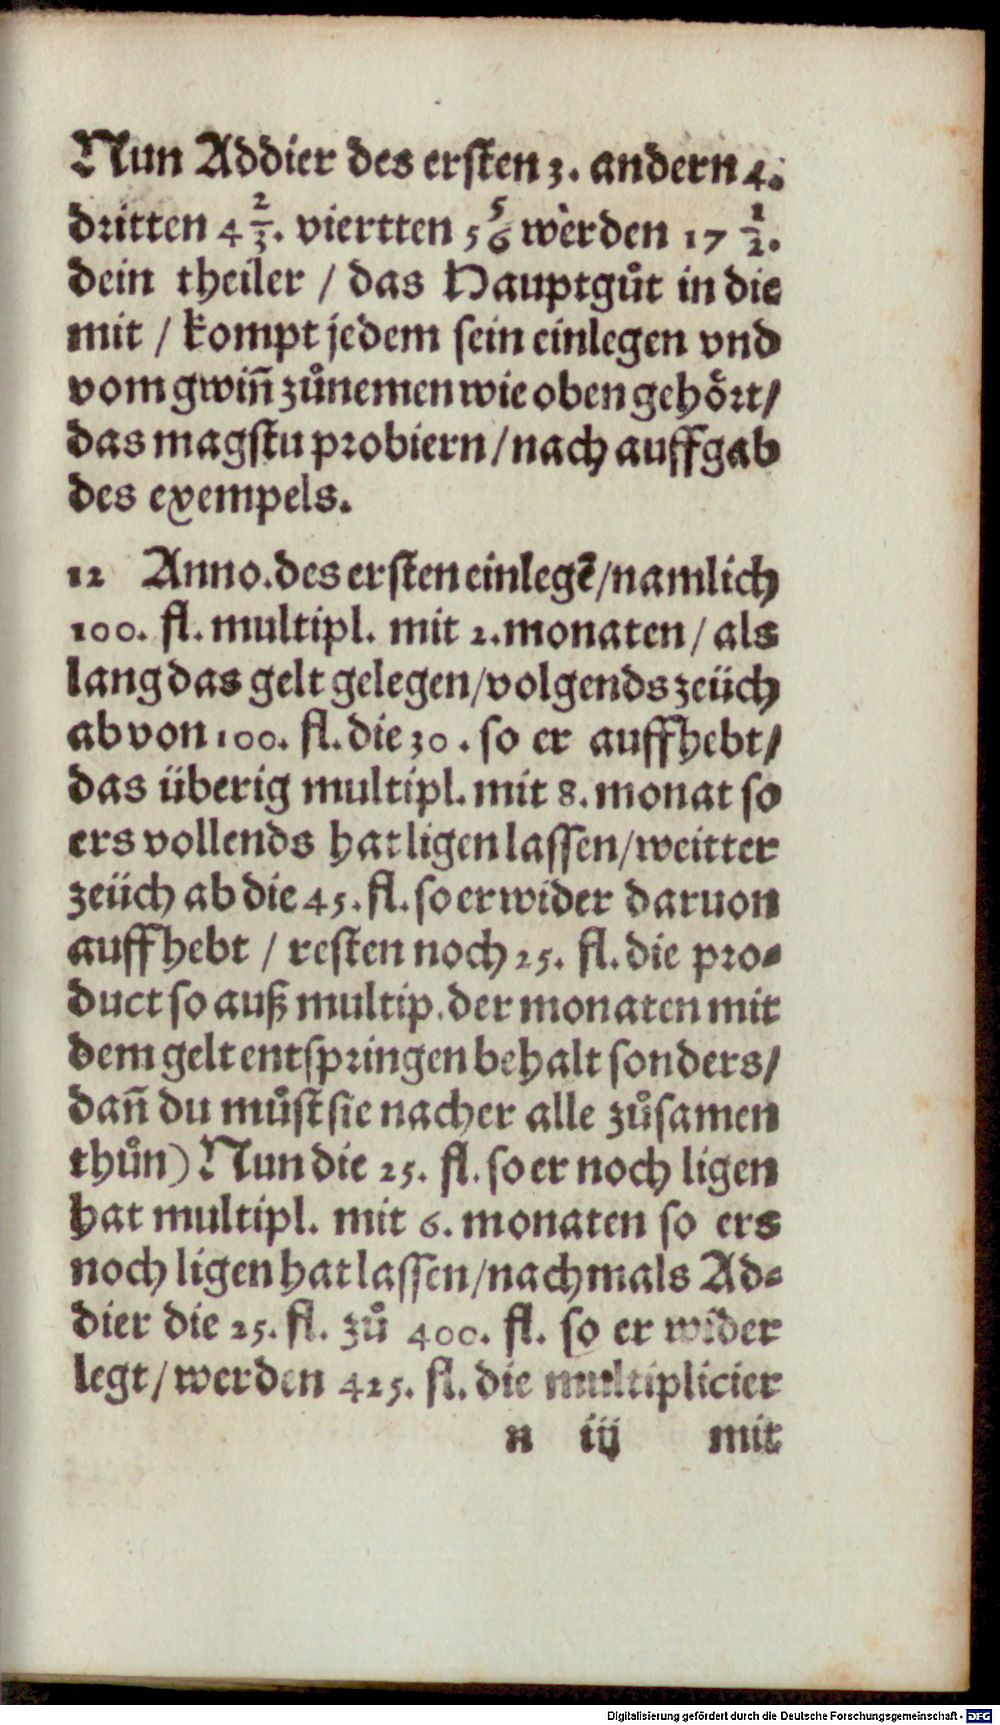 Nun Addier des ersten 3. andern 4.
dritten 4 2/3. viertten 5 5/6 werden 17 1/2.
dein theiler / das Hauptgůt in die
mit / kompt jedem sein einlegen vnd
vom gwiñ zůnemen wie oben gehört/
das magstu probiern/nach auffgab
des exempels.
12 Anno.des ersten einlegẽ/namlich
100. fl. multipl. mit 2.monaten/ als
lang das gelt gelegen/volgends zeüch
ab von 100. fl. die 30. so er auffhebt/
das überig multipl. mit 8. monat so
ers vollends hat ligen lassen/weitter
zeüch ab die 45. fl. so er wider daruon
auffhebt / resten noch 25. fl. die pro-
duct so auß multip. der monaten mit
dem gelt entspringen behalt sonders/
dañ du můst sie nacher alle zůsamen
thůn) Nun die 25. fl. so er noch ligen
hat multipl. mit 6. monaten so ers
noch ligen hat lassen/nachmals Ad-
dier die 25. fl. zů 400. fl. so er wider
legt/werden 425. fl. die multiplicier
n iij mit
Digitalisierung gefördert durch die Deutsche Forschungsgemeinschaft - DFG